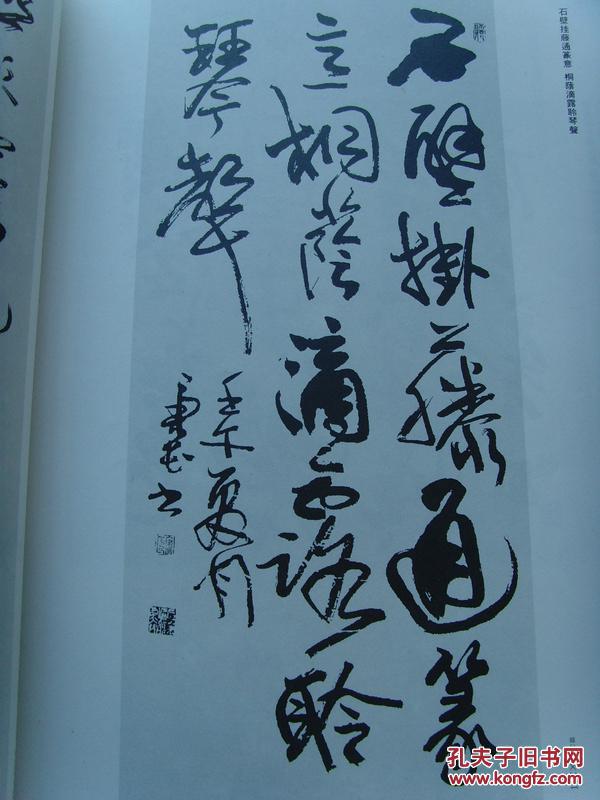 石壁挂藤通篆意 桐蔭滴露聆琴聲
石壁掛藤通篆
意桐蔭滴露聆
琴聲
壬午夏月
孔夫子旧书网
www.kongfz.com